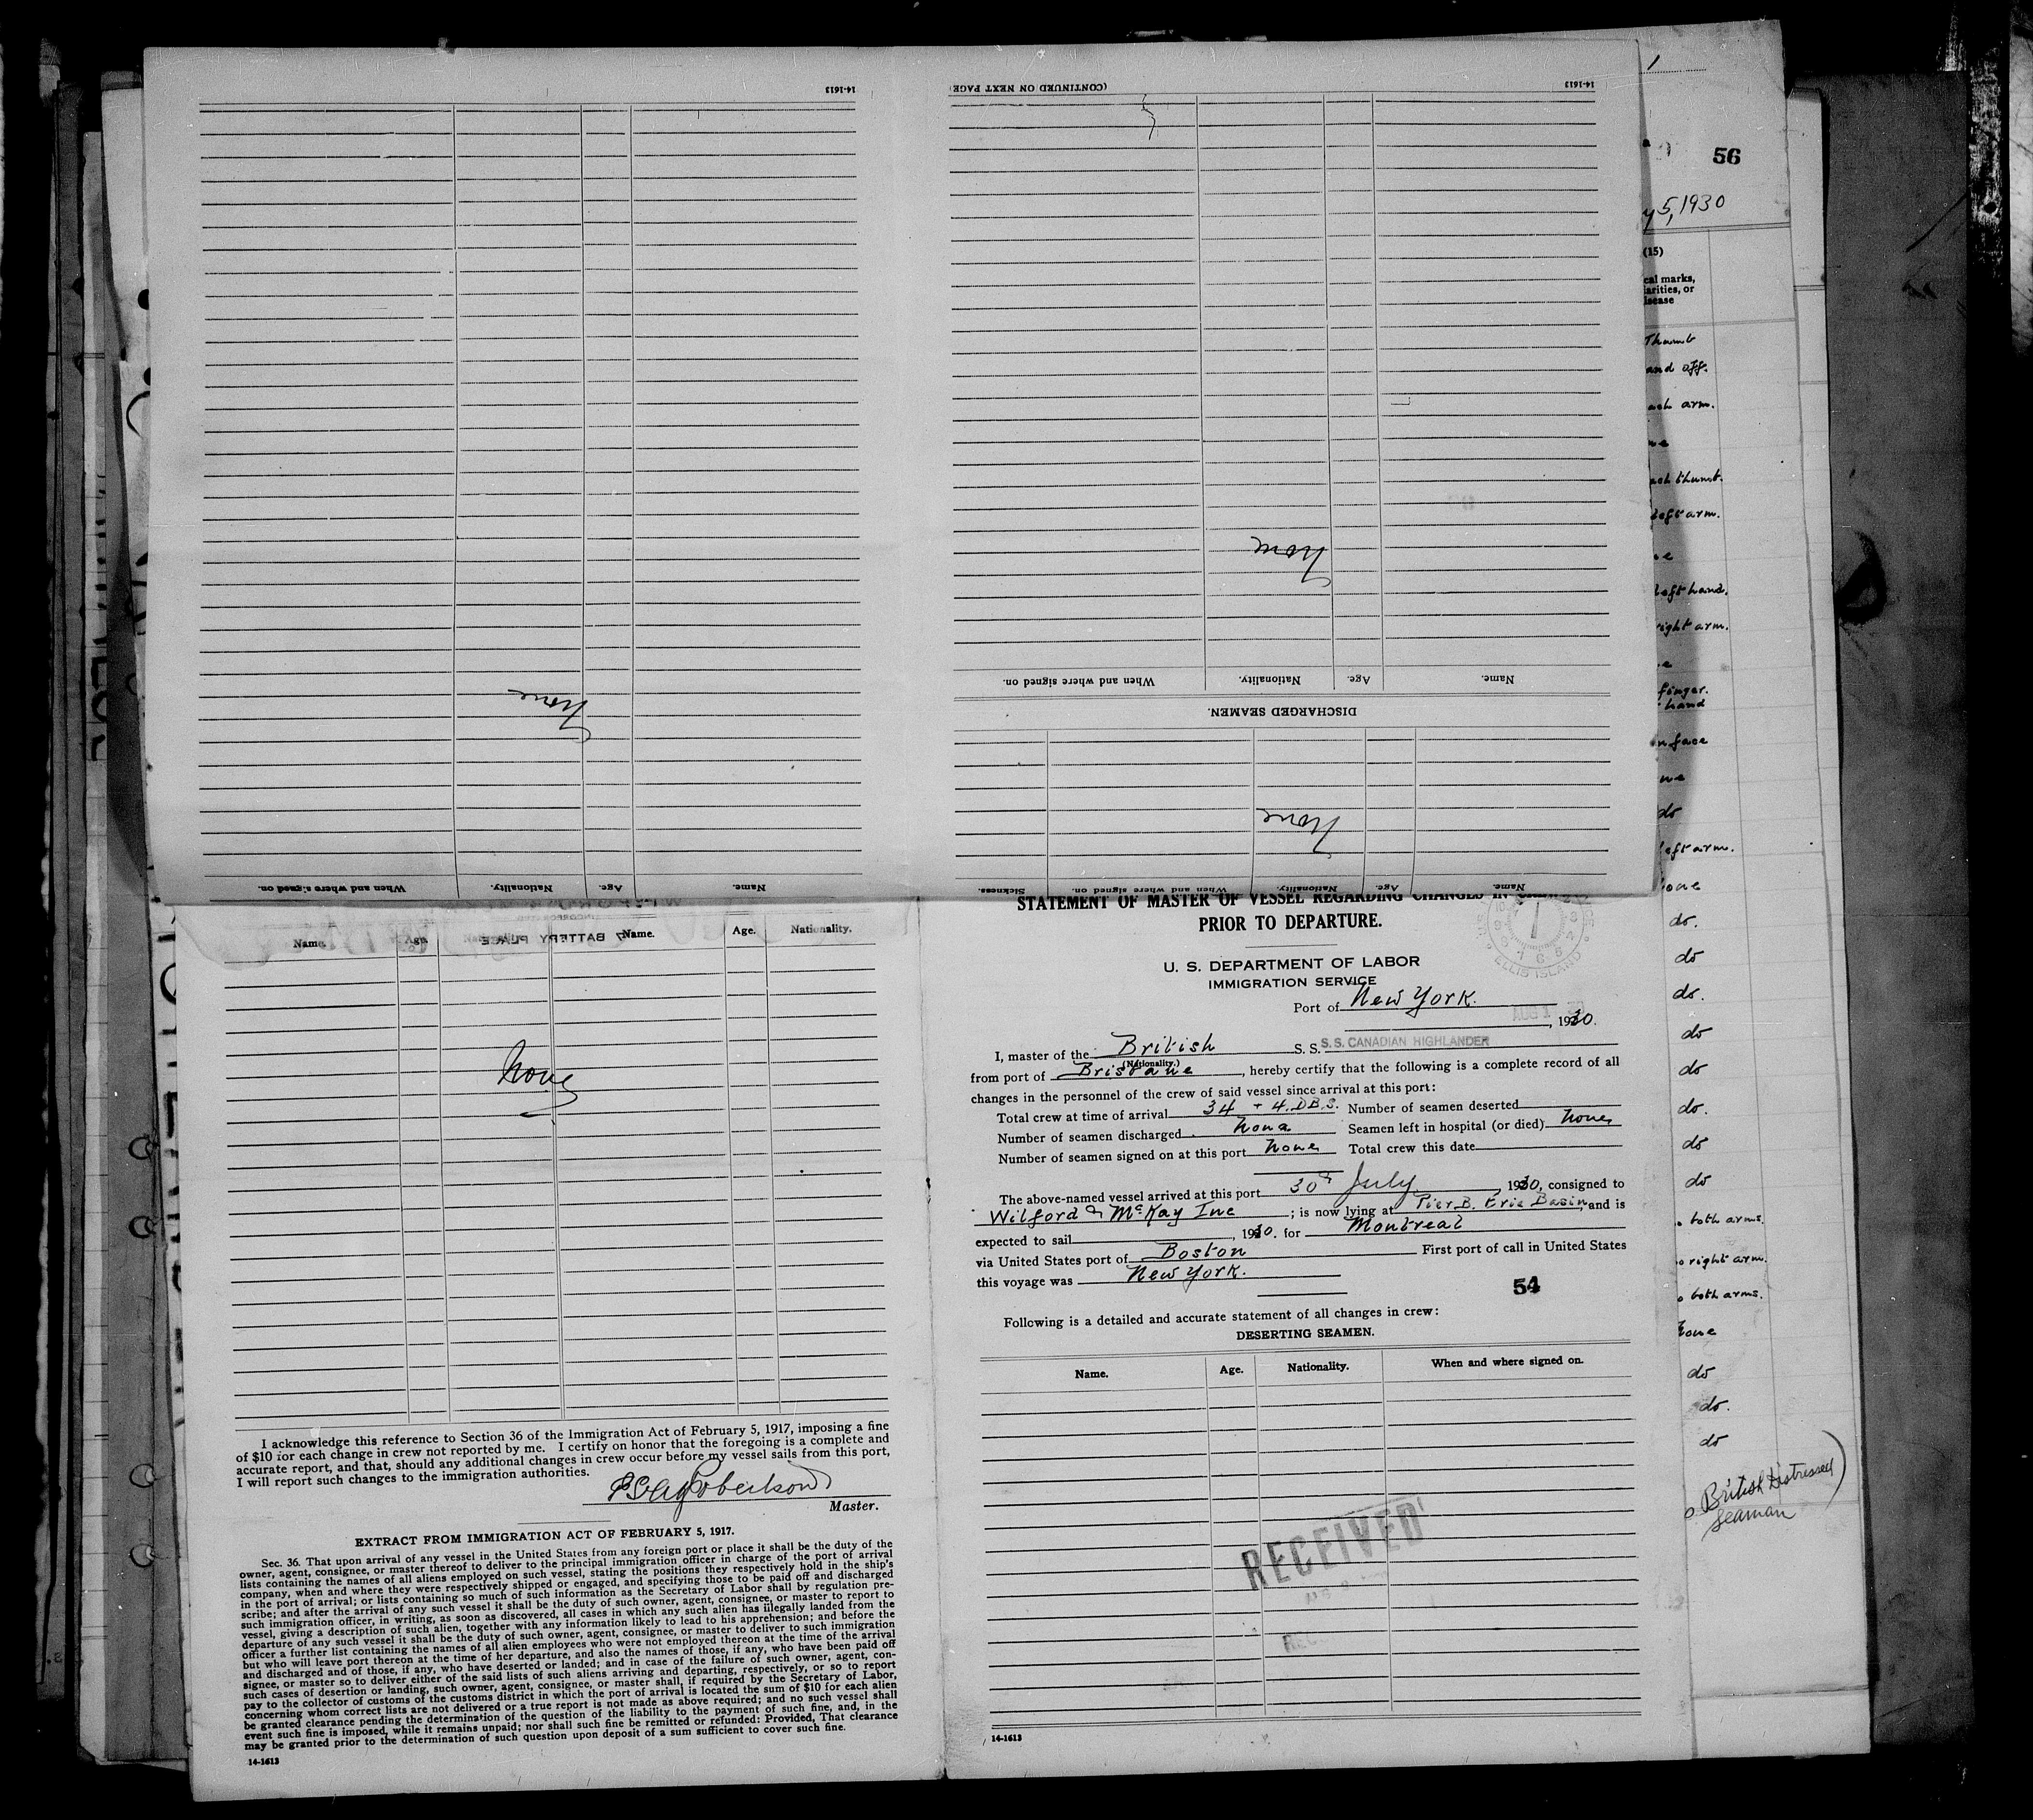 14-1613
(CONTINUED ON NEXT PAGE)
14-1613
None
When and where signed on.
Nationality.
Age.
Name.
None
When and where signed on.
Nationality.
Age.
Name.
DISCHARGED SEAMEN.
None
Sickness.
When and where signed on.
Nationality.
Age.
Name.
56
5, 1930
(15)
cal marks,
arities, or
isease
Thumb
and off.
arm.
left arm.
left hand.
right arm.
finger.
hand
face
do
left arm.
do.
do
do.
do
do
do.
do
do
both arms.
right arm.
both arms.
none
do
do.
do
British Distressed
Seaman
7 BATTERY PLACE
Name.
Age.
Name.
Age.
Nationality.
None
I acknowledge this reference to Section 36 of the Immigration Act of February 5, 1917, imposing a fine
of $10 for each change in crew not reported by me. I certify on honor that the foregoing is a complete and
accurate report, and that, should any additional changes in crew occur before my vessel sails from this port,
I will report such changes to the immigration authorities.
Robertson
Master.
EXTRACT FROM IMMIGRATION ACT OF FEBRUARY 5, 1917.
Sec. 36. That upon arrival of any vessel in the United States from any foreign port or place it shall be the duty of the
owner, agent, consignee, or master thereof to deliver to the principal immigration officer in charge of the port of arrival
lists containing the names of all aliens employed on such vessel, stating the positions they respectively hold in the ship's
company, when and where they were respectively shipped or engaged, and specifying those to be paid off and discharged
in the port of arrival; or lists containing so much of such information as the Secretary of Labor shall by regulation pre-
scribe; and after the arrival of any such vessel it shall be the duty of such owner, agent, consignee, or master to report to
such immigration officer, in writing, as soon as discovered, all cases in which any such alien has illegally landed from the
vessel, giving a description of such alien, together with any information likely to lead to his apprehension; and before the
departure of any such vessel it shall be the duty of such owner, agent, consignee, or master to deliver to such immigration
officer a further list containing the names of all alien employees who were not employed thereon at the time of the arrival
but who will leave port thereon at the time of her departure, and also the names of those, if any, who have been paid off
and discharged and of those, if any, who have deserted or landed; and in case of the failure of such owner, agent, con-
signee, or master so to deliver either of the said lists of such aliens arriving and departing, respectively, or so to report
such cases of desertion or landing, such owner, agent, consignee, or master shall, if required by the Secretary of Labor,
pay to the collector of customs of the customs district in which the port of arrival is located the sum of $10 for each alien
concerning whom correct lists are not delivered or a true report is not made as above required; and no such vessel shall
be granted clearance pending the determination of the question of the liability to the payment of such fine, and, in the
event such fine is imposed, while it remains unpaid; nor shall such fine be remitted or refunded: Provided, That clearance
may be granted prior to the determination of such question upon deposit of a sum sufficient to cover such fine.
14-1613
STATEMENT OF MASTER OF VESSEL REGARDING CHANGES IN
PRIOR TO DEPARTURE.
ELLIS ISLAND
U. S. DEPARTMENT OF LABOR
IMMIGRATION SERVICE
Port of New York.
AUG 1, 1930.
I, master of the British S. S. S.S. CANADIAN HIGHLANDER
(Nationality.)
from port of Brisbane, hereby certify that the following is a complete record of all
changes in the personnel of the crew of said vessel since arrival at this port:
Total crew at time of arrival 34 + 4. D.B.S. Number of seamen deserted
Number of seamen discharged None Seamen left in hospital (or died) None
Number of seamen signed on at this port None Total crew this date
The above-named vessel arrived at this port 30th July, 1930, consigned to
Wilford & McKay Inc; is now lying at Pier B. Erie Basin, and is
expected to sail , 1930. for Montreal
via United States port of Boston First port of call in United States
this voyage was New York.
54
Following is a detailed and accurate statement of all changes in crew:
DESERTING SEAMEN.
Name.
Age.
Nationality.
When and where signed on.
RECEIVED
14-1613